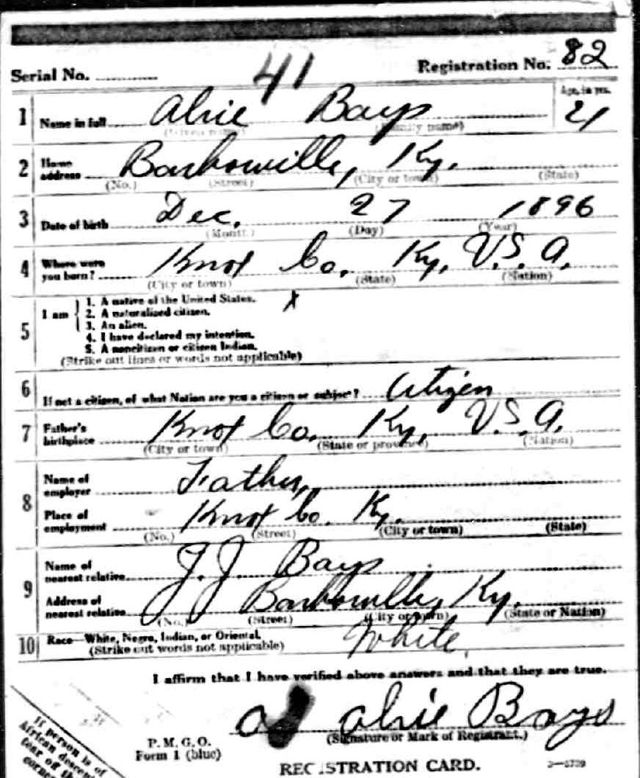 Serial No. 41 Registration No. 82
1 Name in full Alrie Bays Age, in yrs. 21
(Given name) (Family name)
2 Home address Barbourville, Ky.
(No.) (Street) (City or town) (State)
3 Date of birth Dec. 27 1896
(Month) (Day) (Year)
4 Where were you born? Knox Co. Ky. U.S.A.
(City or town) (State) (Nation)
5 I am
1. A native of the United States. x
2. A naturalized citizen.
3. An alien.
4. I have declared my intention.
5. A noncitizen or citizen Indian.
(Strike out lines or words not applicable)
6 If not a citizen, of what Nation are you a citizen or subject? Citizen
7 Father's birthplace Knox Co. Ky. U.S.A.
(City or town) (State or province) (Nation)
8 Name of employer Father,
Place of employment Knox Co. Ky.
(No.) (Street) (City or town) (State)
9 Name of nearest relative J. J Bays
Address of nearest relative Barbourville, Ky.
(No.) (Street) (City or town) (State or Nation)
10 Race—White, Negro, Indian, or Oriental. White.
(Strike out words not applicable)
I affirm that I have verified above answers and that they are true.
Alrie Bays
(Signature or Mark of Registrant.)
P. M. G. O.
Form 1 (blue)
REGISTRATION CARD.
If person is of
African descent
tear off th
corner